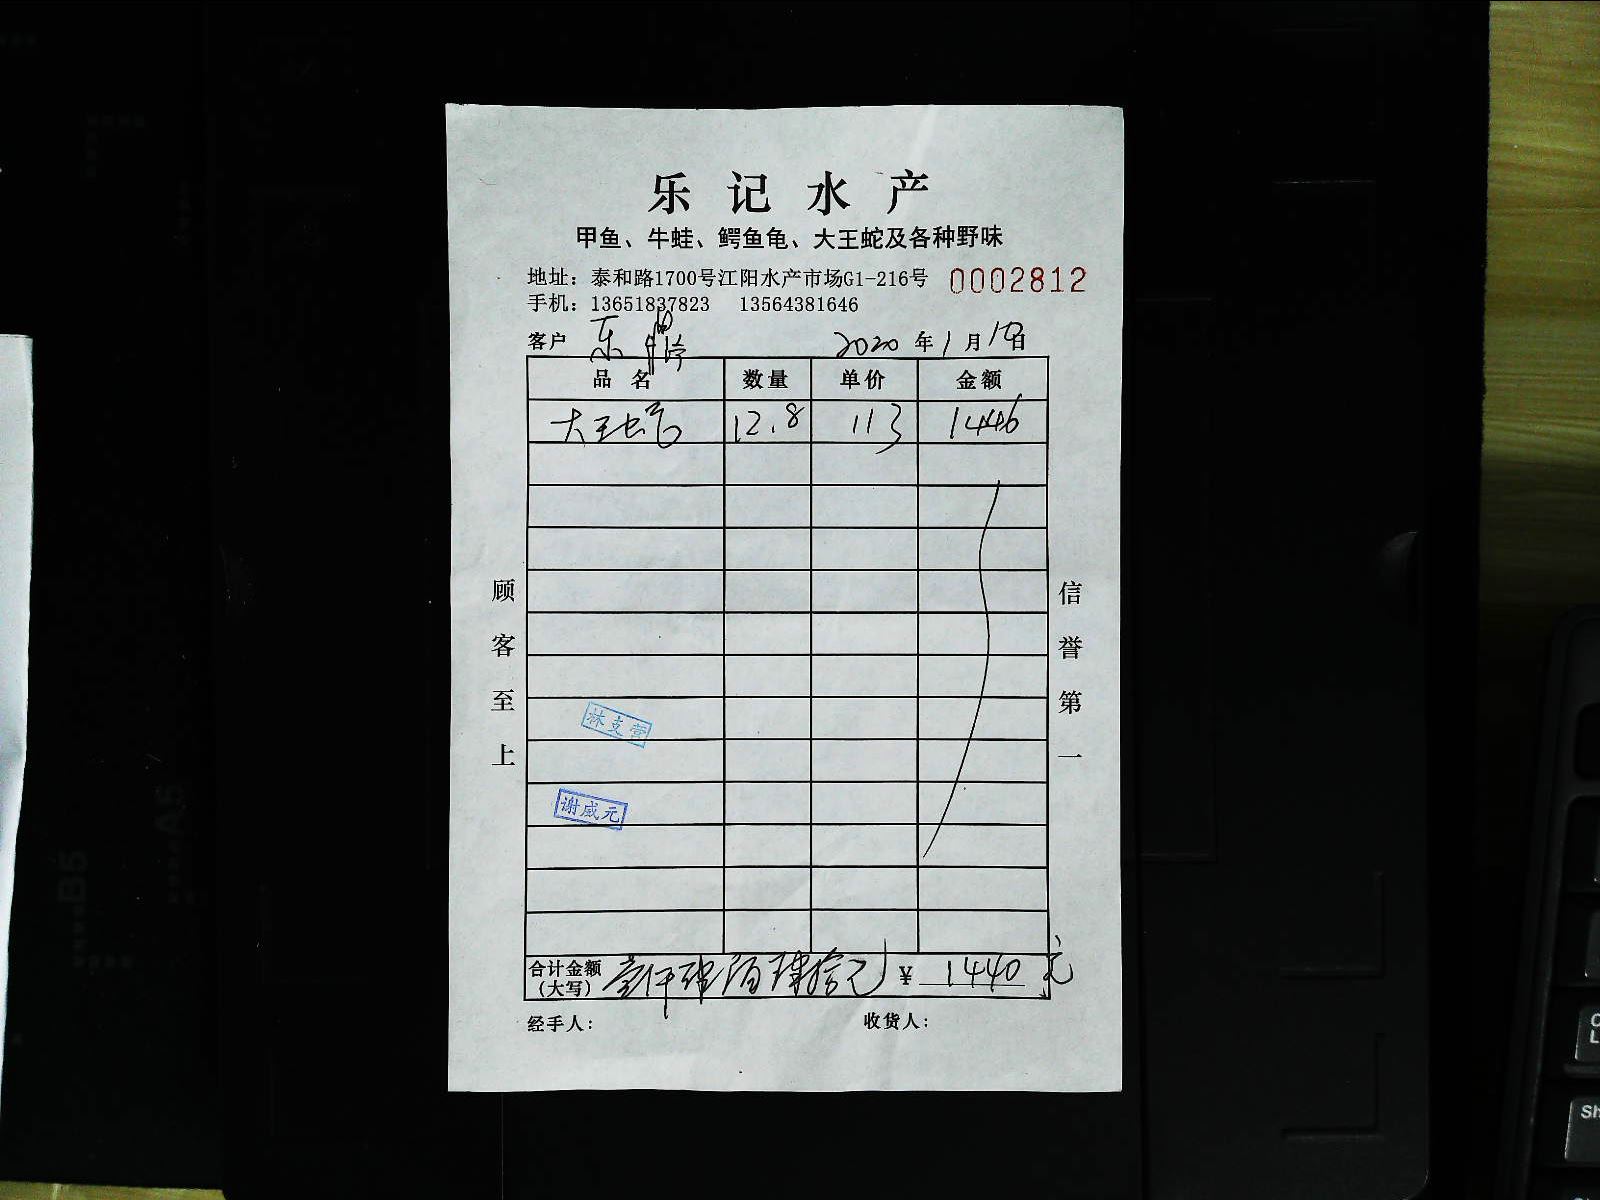 乐记水产
甲鱼、牛蛙、鳄鱼龟、大王蛇及各种野味
地址：泰和路1700号江阳水产市场G1-216号 0002812
手机：13651837823 13564381646
客户 东 2020年1月10日
品名 数量 单价 金额
大王蛇 12.8 113 1446
顾客至上
信誉第一
林支营
谢威元
合计金额（大写） 壹仟肆佰肆拾元 ¥ 1440 元
经手人： 收货人：